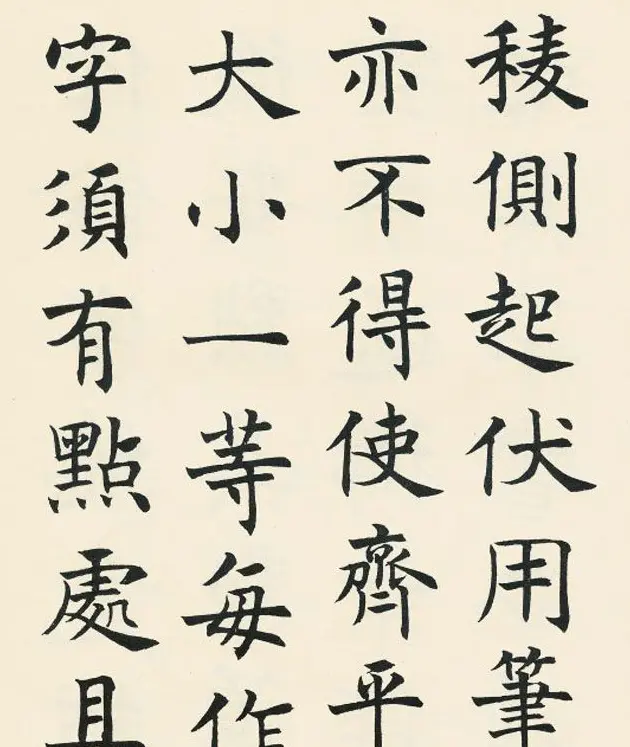 稜側起伏用筆
亦不得使齊平
大小一等每作
字須有點處且